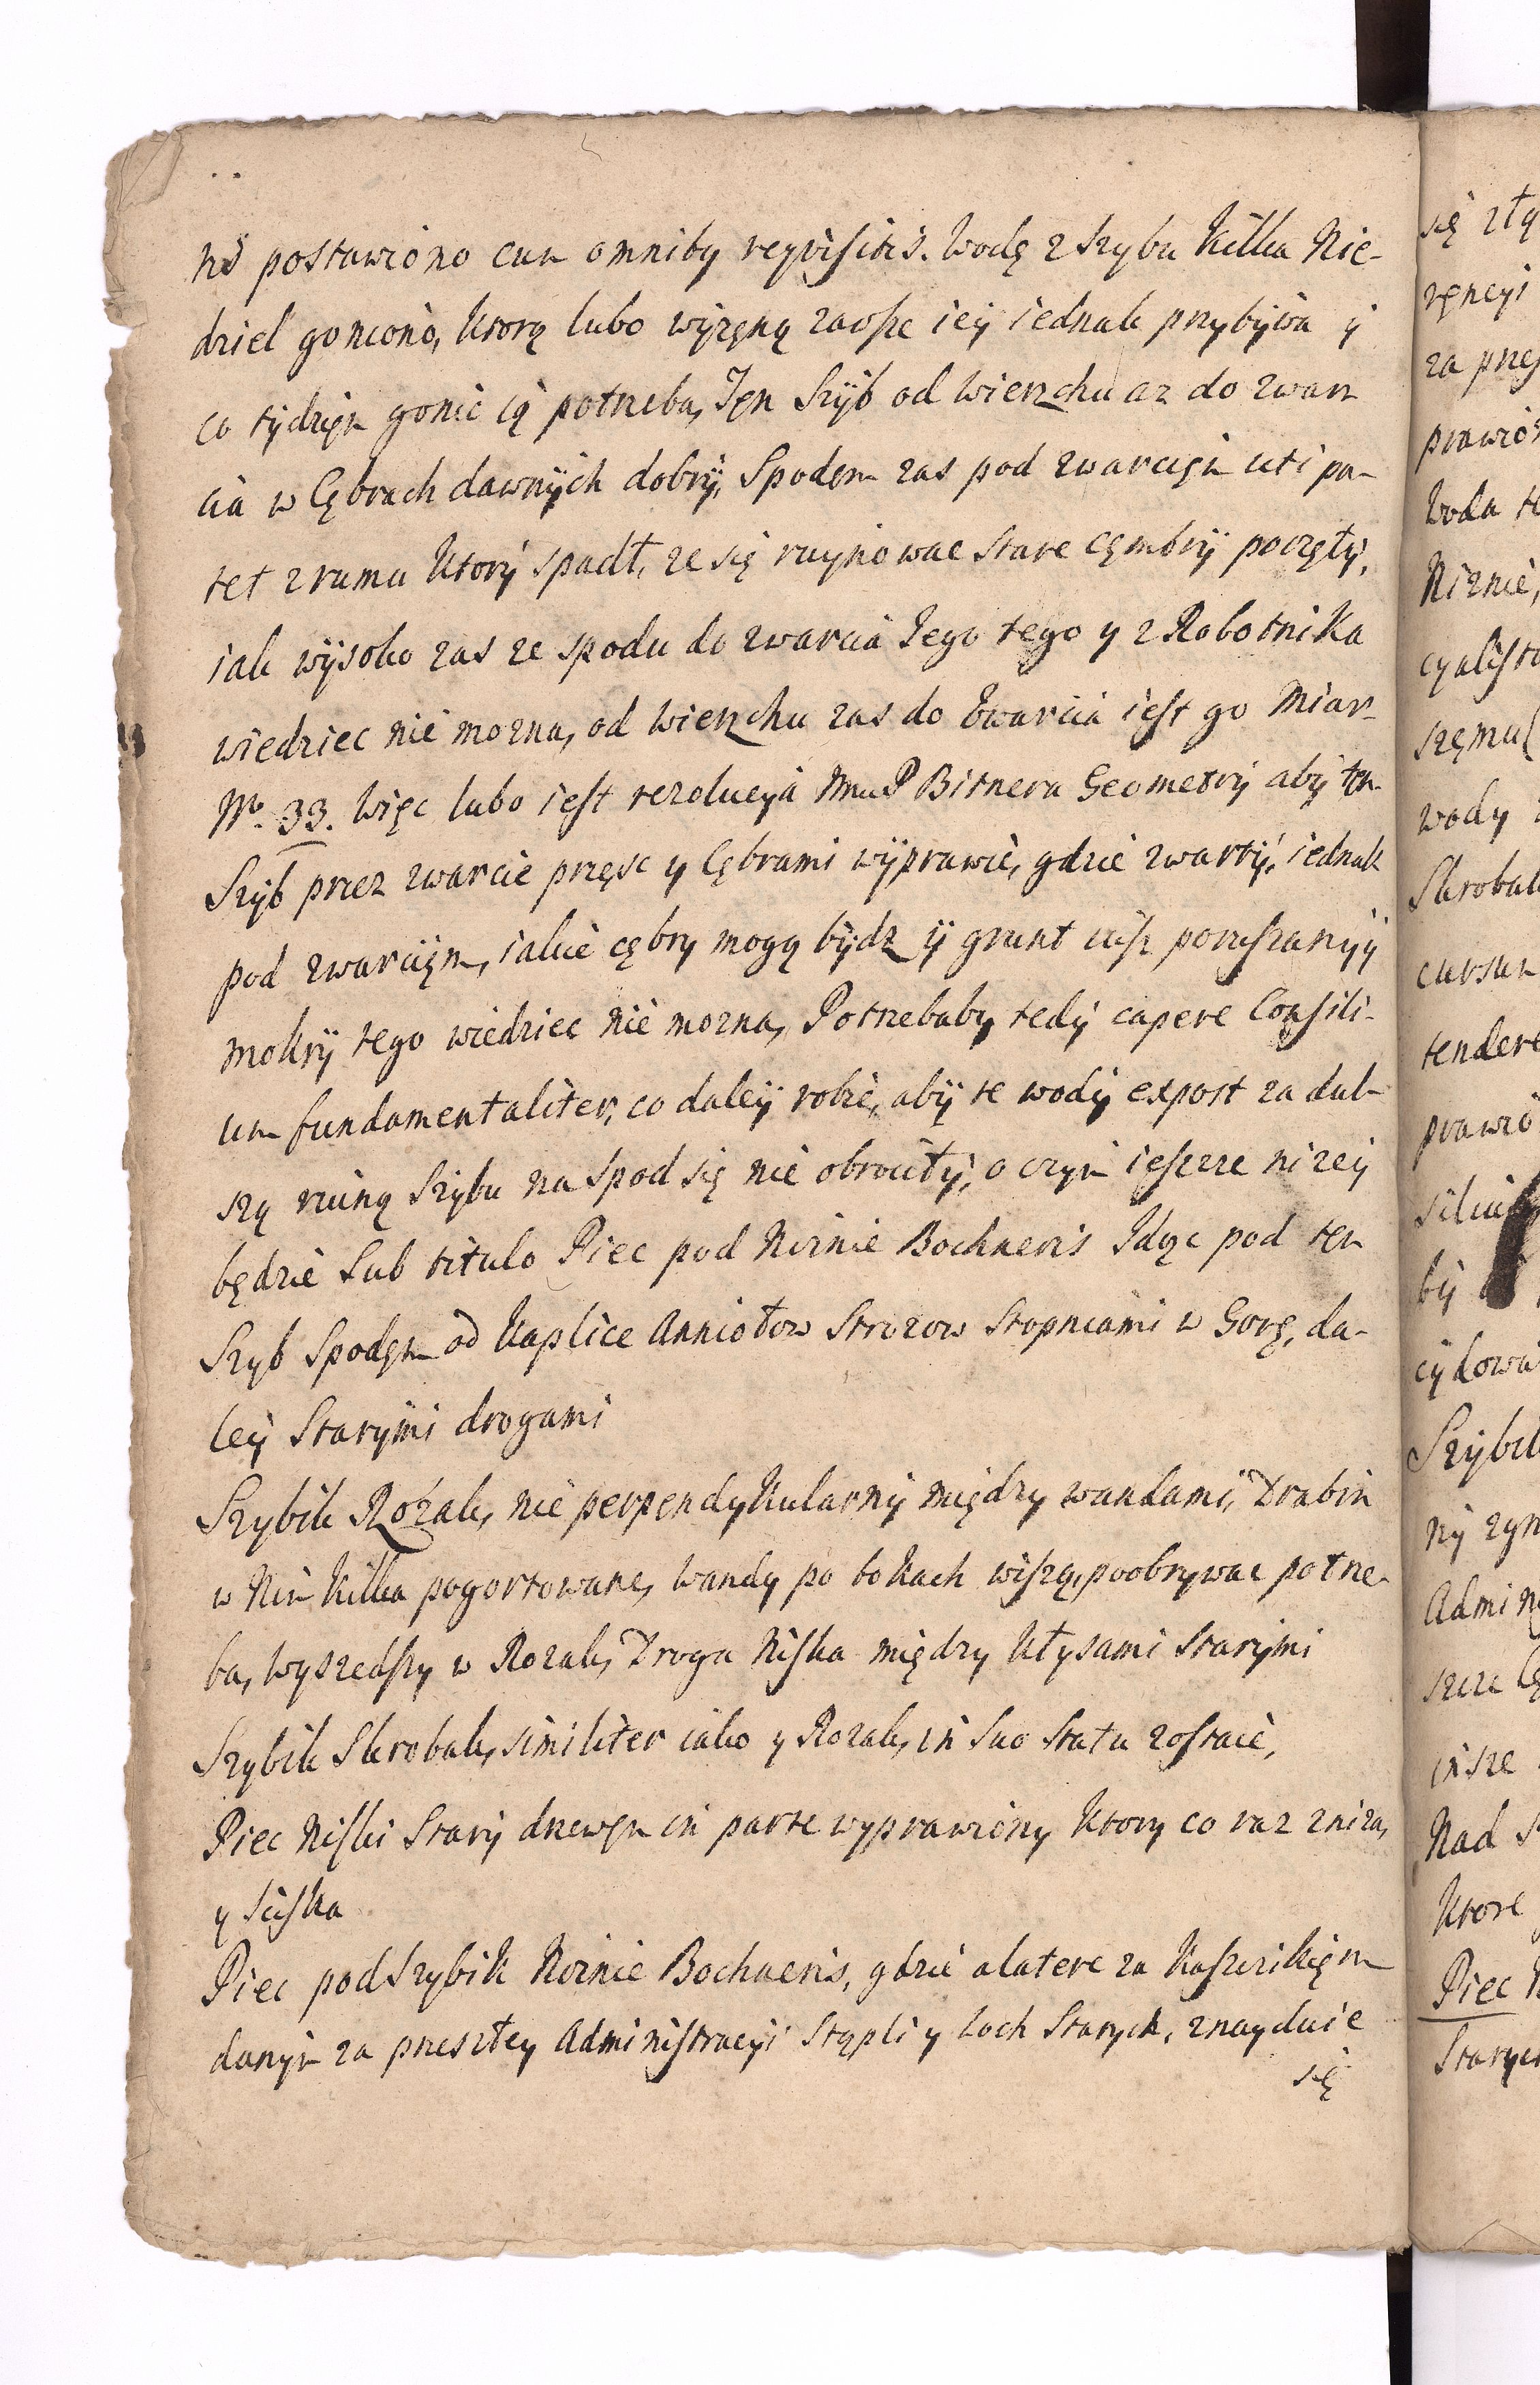 no postawiono cum omniby reqvisitis. Wodę z Szybu Kilka Nie-
dziel goniono, Ktorą lubo wyzęną zawsze iey iednak przybywa y
co tydzięn gonic ią potrzeba, Tęn Szyb od Wierzchu az do zwar
cia w Cębrach dawnych dobry, Spodęm zas pod zwarcięm uti pa-
tet z rumu Ktory spadł, ze się ruynowac stare cęmbry poczęły,
iak wysoko zas ze spodu do zwarcia Jego tego y z Robotnika
wiedziec nie mozna, od Wierzchu zas do Zwarcia iest go Miar
No. 33. Więc lubo iest rezolucya Bitnera Geometry aby tęn
Szyb przez zwarcie przęsc y Cębrami wyprawic, gdzie zwarty, iednak
pod zwarcięm, iakie cębry mogą bydz y grunt iusz poruszany y
mokry tego wiedziec nie mozna, Potrzebaby tedy capere Consili-
um fundamentaliter, co daley robic, aby te wody expost za dal-
szą ruiną Szybu na spod się nie obrociły, o czym ieszcze nizey
będzie Sub titulo Piec pod Niznie Bochneris Idąc pod tęn
Szyb Spodęm od Kaplice Anniołow Strozow Stopniami w Gorę, da-
ley Starymi drogami
Szybik Rożak, nie perpęndykularny między wandami, Drabin
w Nim Kilka pogortowane, Wandy po bokach wiszą, poobrywac potrze-
ba, Wyszedszy w Rozak, Droga Niska między Kłysami Starymi
Szybik Skrobak, similiter iako y Rozak, in Suo Statu zostaie,
Piec Niski Stary drzewęm in parte wyprawiony Ktory co raz zniza,
y Sciska
Piec pod Szybik Niznie Bochneris, gdzie a latere za Kaszczikięm
danym za przeszłey Administracyi Stępli y Loch Starych, znayduie
się